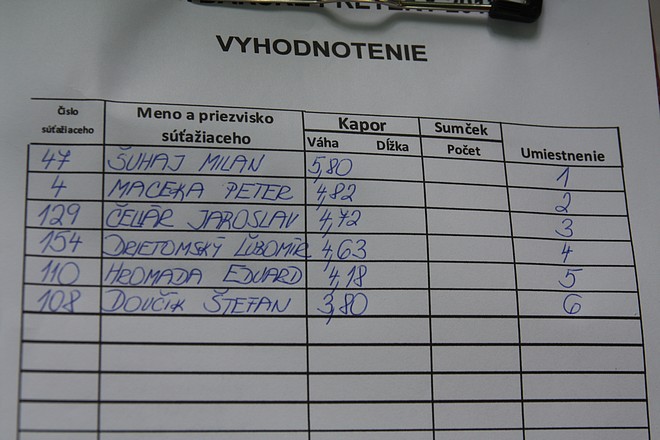 VYHODNOTENIE
Číslo súťažiaceho Meno a priezvisko súťažiaceho Kapor Váha Dĺžka Sumček Počet Umiestnenie
47 ŠUHAJ MILAN 5,80 1
4 MACEKA PETER 4,82 2
129 ČELÁR JAROSLAV 4,72 3
154 DRIETOMSKÝ ĽUBOMÍR 4,63 4
110 HROMADA EDUARD 4,18 5
108 DOUČIK ŠTEFAN 3,80 6